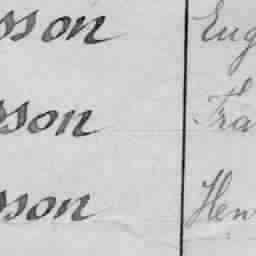 sson Eug
sson Fra
sson Hen